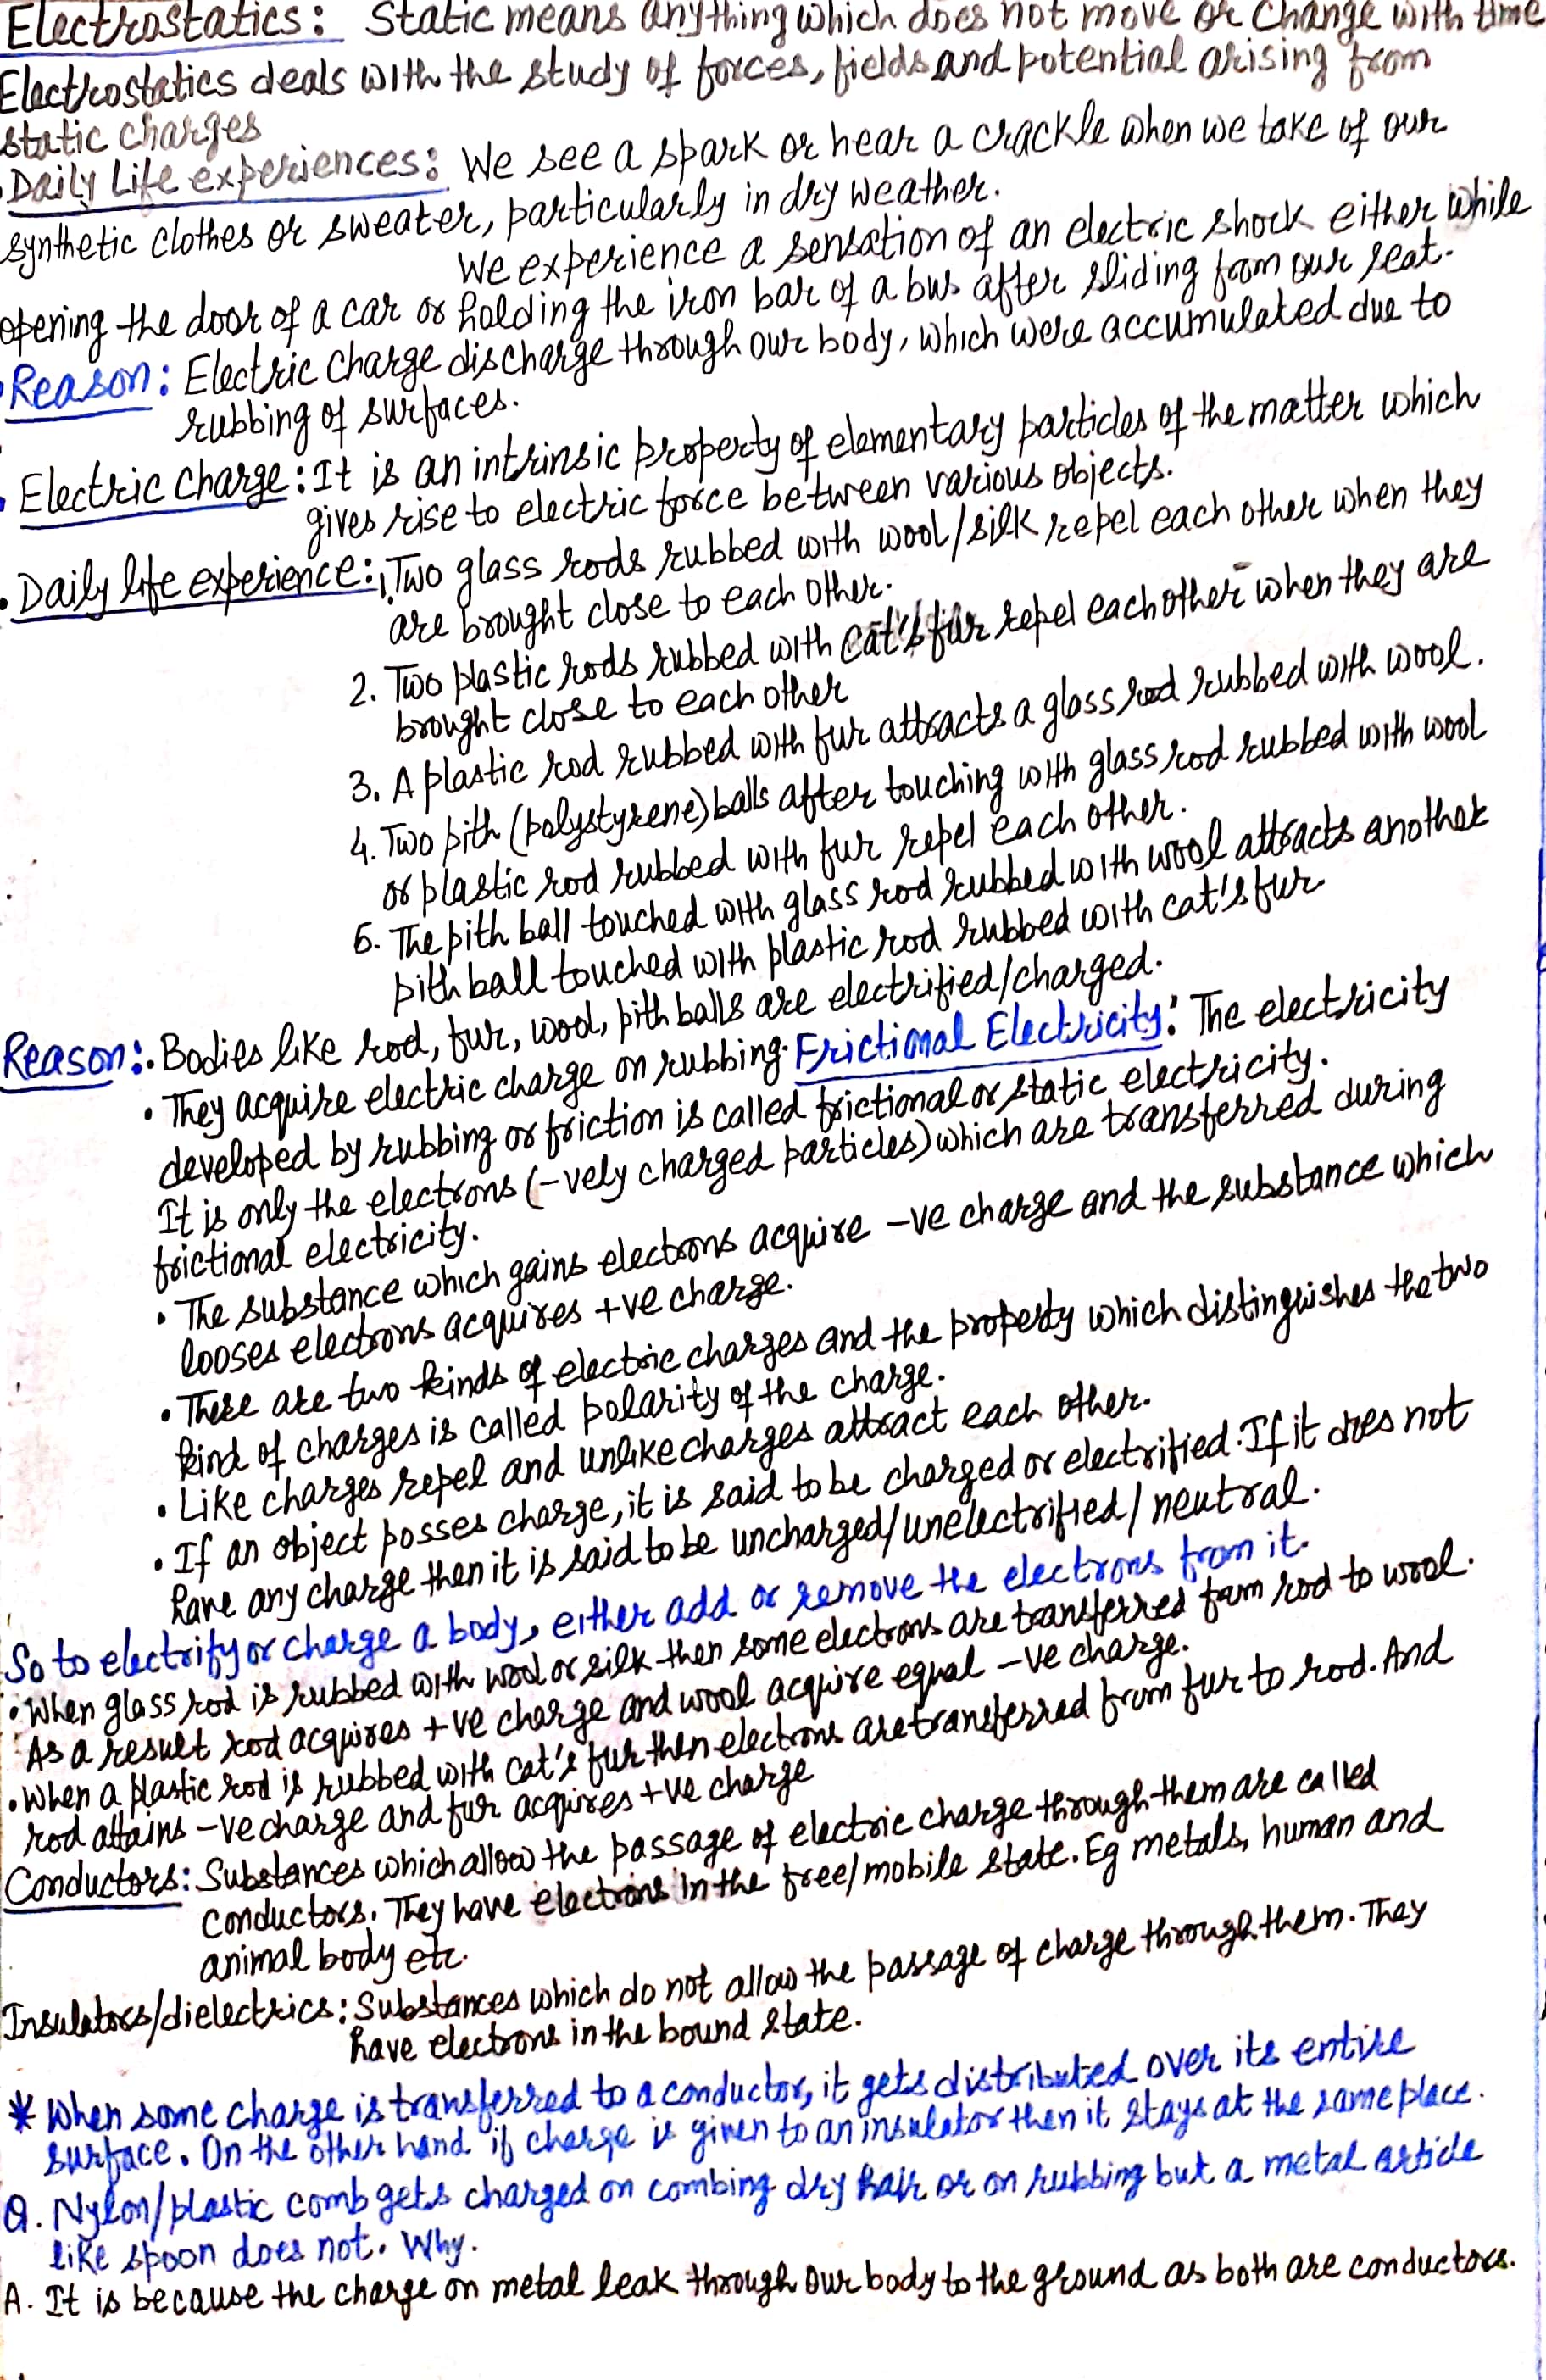 Electrostatics: Static means anything which does not move or change with time
Electrostatics deals with the study of forces, fields and potential arising from
static charges
Daily Life experiences: We see a spark or hear a crackle when we take of our
synthetic clothes or sweater, particularly in dry weather.
We experience a sensation of an electric shock either while
opening the door of a car or holding the iron bar of a bus after sliding from our seat.
Reason: Electric charge discharge through our body, which were accumulated due to
rubbing of surfaces.
Electric charge: It is an intrinsic property of elementary particles of the matter which
gives rise to electric force between various objects.
Daily life experience: 1. Two glass rods rubbed with wool/silk repel each other when they
are brought close to each other.
2. Two plastic rods rubbed with cat's fur repel each other when they are
brought close to each other
3. A plastic rod rubbed with fur attracts a glass rod rubbed with wool.
4. Two pith (polystyrene) balls after touching with glass rod rubbed with wool
or plastic rod rubbed with fur repel each other.
5. The pith ball touched with glass rod rubbed with wool attracts another
pith ball touched with plastic rod rubbed with cat's fur
Reason: • Bodies like rod, fur, wool, pith balls are electrified/charged.
• They acquire electric charge on rubbing. Frictional Electricity: The electricity
developed by rubbing or friction is called frictional or static electricity.
It is only the electrons (-vely charged particles) which are transferred during
frictional electricity.
• The substance which gains electrons acquire -ve charge and the substance which
looses electrons acquires +ve charge.
• There are two kinds of electric charges and the property which distinguishes the two
kind of charges is called polarity of the charge.
• Like charges repel and unlike charges attract each other.
• If an object posses charge, it is said to be charged or electrified. If it does not
have any charge then it is said to be uncharged/unelectrified/neutral.
So to electrify or charge a body, either add or remove the electrons from it.
• When glass rod is rubbed with wool or silk then some electrons are transferred from rod to wool.
As a result rod acquires +ve charge and wool acquire equal -ve charge.
• When a plastic rod is rubbed with cat's fur then electrons are transferred from fur to rod. And
rod attains -ve charge and fur acquires +ve charge
Conductors: Substances which allow the passage of electric charge through them are called
conductors. They have electrons in the free/mobile state. Eg metals, human and
animal body etc.
Insulators/dielectrics: Substances which do not allow the passage of charge through them. They
have electrons in the bound state.
* When some charge is transferred to a conductor, it gets distributed over its entire
surface. On the other hand if charge is given to an insulator then it stays at the same place.
Q. Nylon/plastic comb gets charged on combing dry hair or on rubbing but a metal article
like spoon does not. Why.
A. It is because the charge on metal leak through our body to the ground as both are conductors.